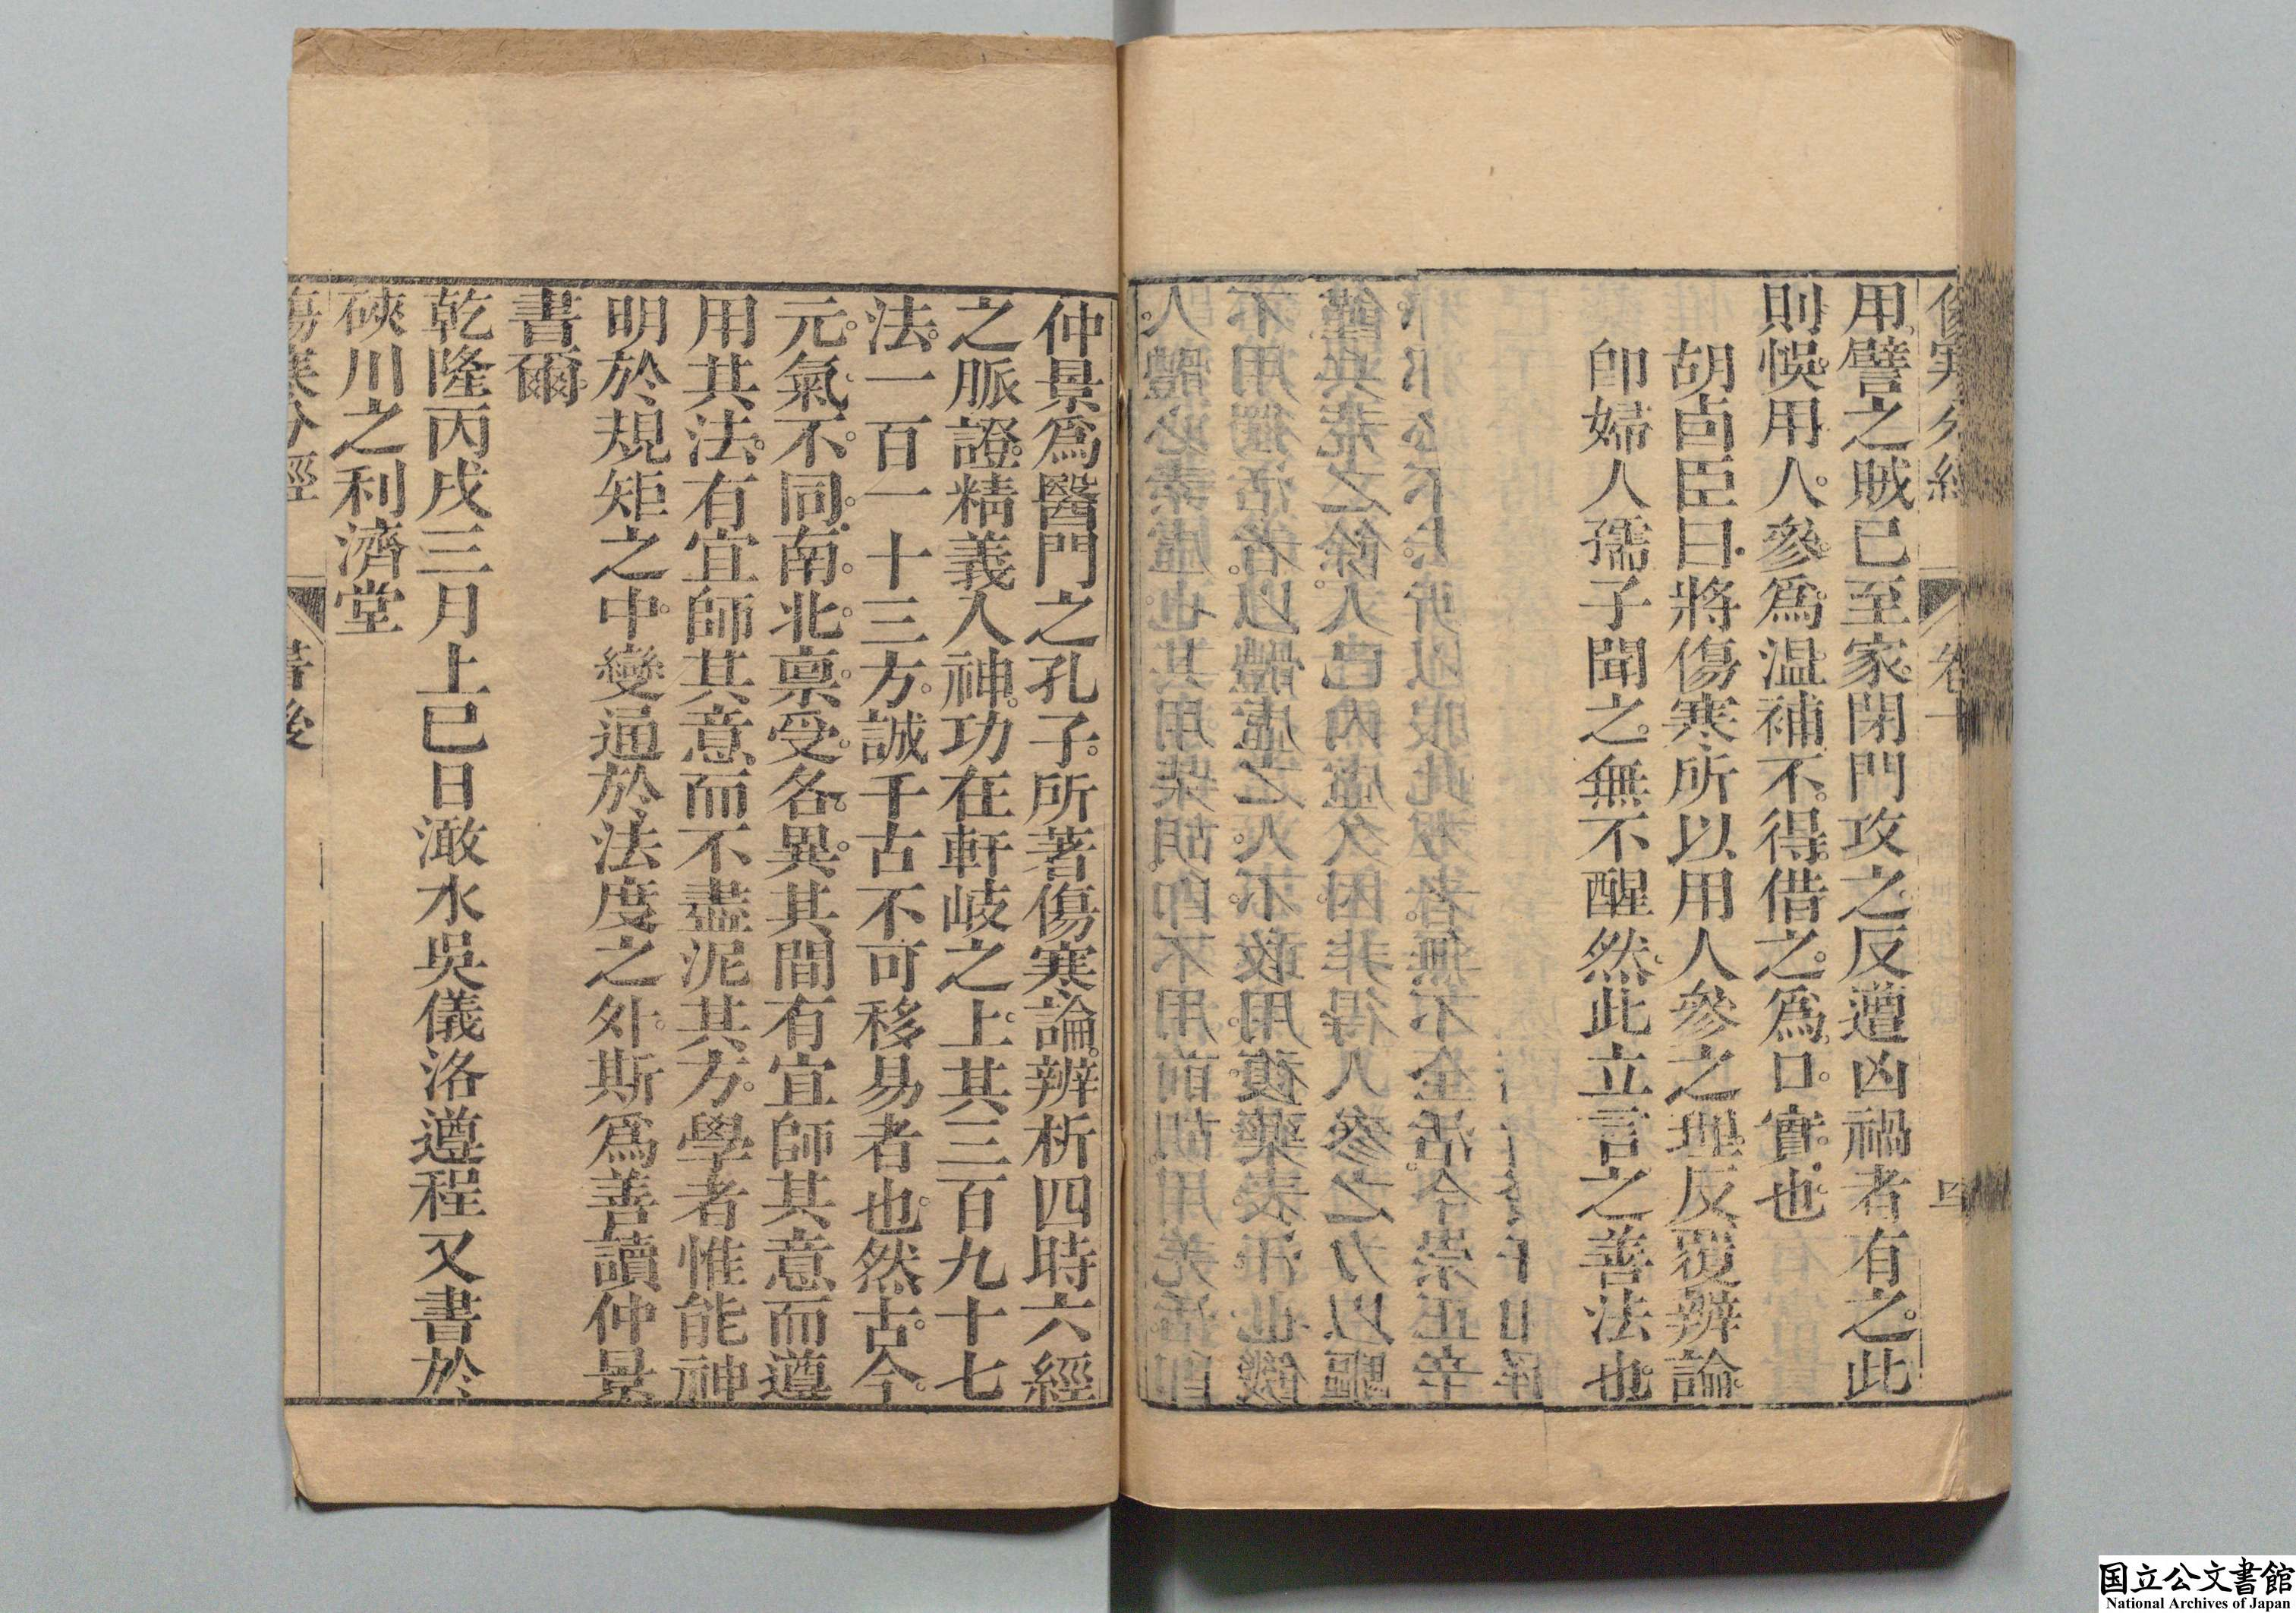 傷寒分經
卷十
用譬之賊已至家閉門攻之反遭凶禍者有之此
則悞用人參爲溫補不得借之爲口實也
胡卣臣曰將傷寒所以用人參之理反覆辨論
卽婦人孺子聞之無不醒然此立言之善法也
仲景爲醫門之孔子所著傷寒論辨析四時六經
之脈證精義人神功在軒岐之上其三百九十七
法一百一十三方誠千古不可移易者也然古今
元氣不同南北禀受各異其間有宜師其意而遵
用其法有宜師其意而不盡泥其方學者惟能神
明於規矩之中變通於法度之外斯爲善讀仲景
書爾
乾隆丙戌三月上巳日澉水吳儀洛遵程又書於
硤川之利濟堂
傷寒分經
書後
国立公文書館
National Archives of Japan